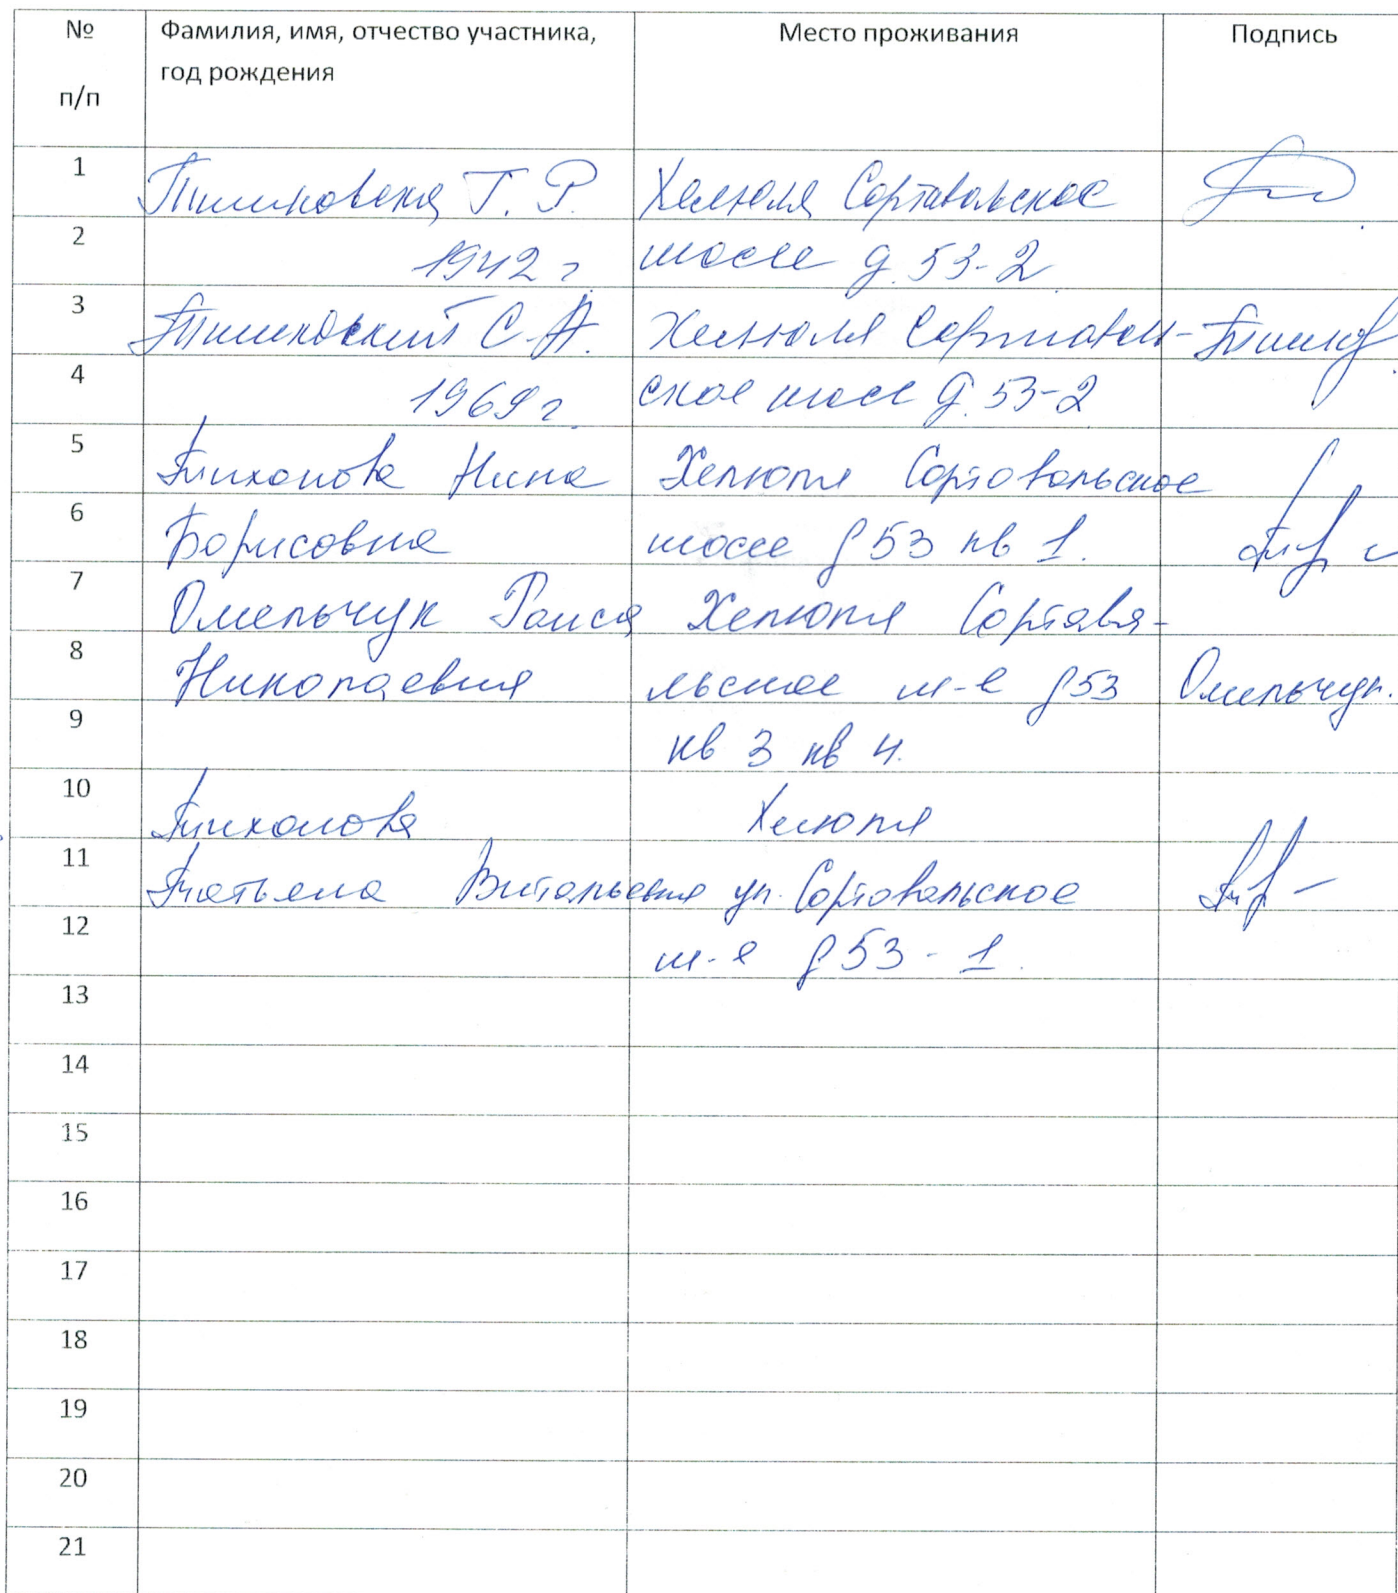 № п/п Фамилия, имя, отчество участника, год рождения Место проживания Подпись
1 Тишковская Т. Р. Хелюля Сортавальское
2 1942 г шоссе д. 53-2
3 Тишковский С.А. Хелюля Сортаваль-
4 1969 г. ское шоссе д. 53-2
5 Тихонова Нина Хелюля Сортовальское
6 Борисовна шоссе д 53 кв 1.
7 Омельчук Раиса Хелюля Сортава-
8 Николаевна льское ш-е д53 Омельчук.
9 кв 3 кв 4.
10 Тихонова Хелюля
11 Татьяна Витальевна ул. Сортовальское
12 ш-е д 53 - 1.
13
14
15
16
17
18
19
20
21